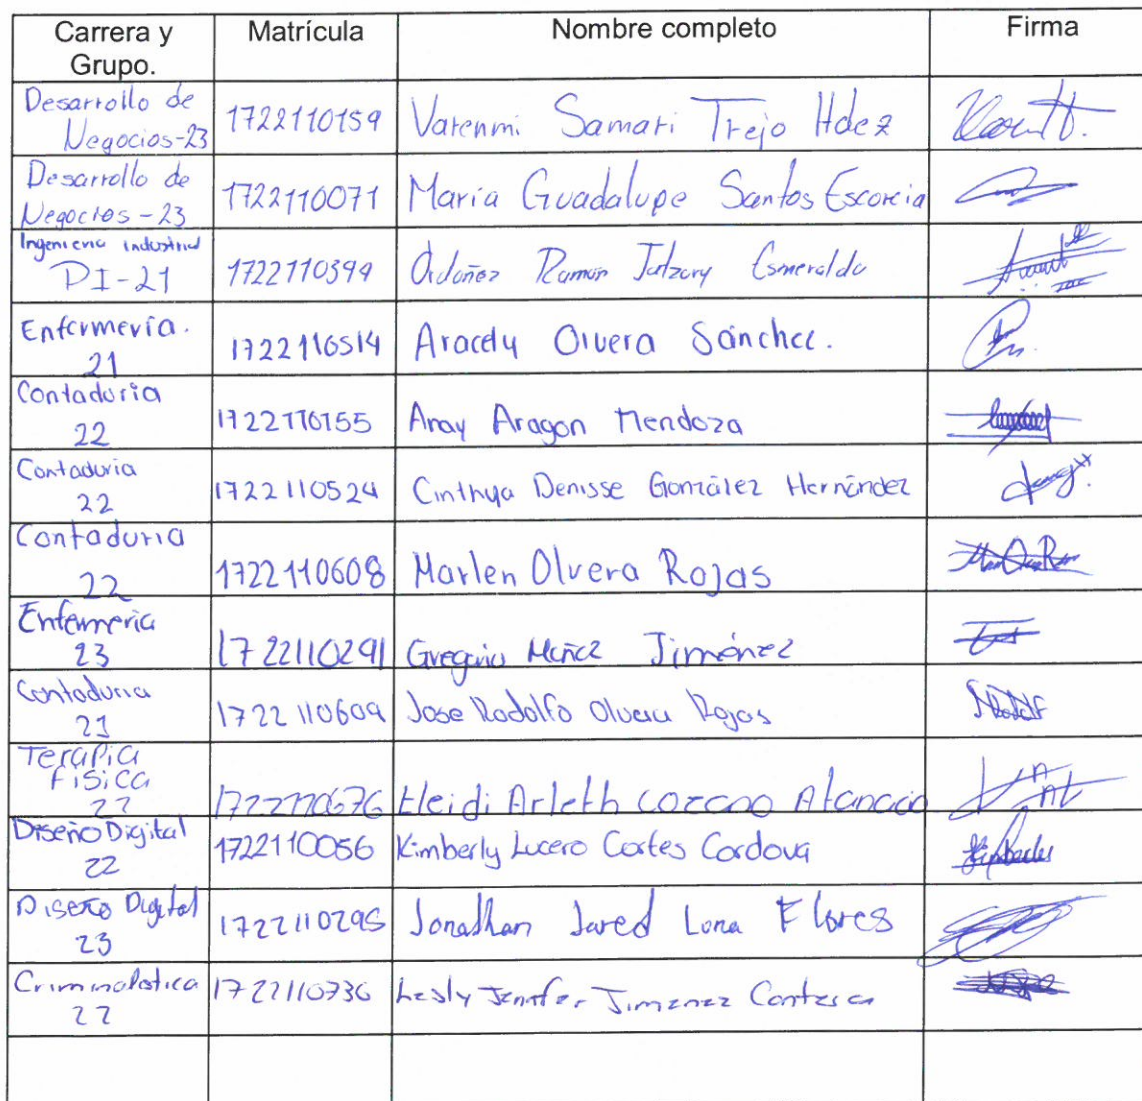 Carrera y Grupo. Matrícula Nombre completo Firma
Desarrollo de
Negocios-23 1722110159 Varenmi Samari Trejo Hdez
Desarrollo de
Negocios-23 1722110071 María Guadalupe Santos Escorcia
Ingenieria industrial
PI-21 1722110399 Ordoñez Ramón Jatzary Esmeralda
Enfermería.
21 1722110514 Aracely Olvera Sánchez.
Contaduria
22 1722110155 Anay Aragon Mendoza
Contaduria
22 1722110524 Cinthya Denisse González Hernández
Contaduria
22 1722110608 Marlen Olvera Rojas
Enfermeria
23 1722110291 Gregorio Jiménez
Contaduria
21 1722110609 Jose Rodolfo Olvera Rojas
Terapia
Fisica
22 1722110676 Heidi Arleth Atanacio
Diseño Digital
22 1722110056 Kimberly Lucero Cortes Cordova
Diseño Digital
23 1722110295 Jonathan Jared Luna Flores
Criminalistica
22 1722110736 Lesly Jennifer Jimenez